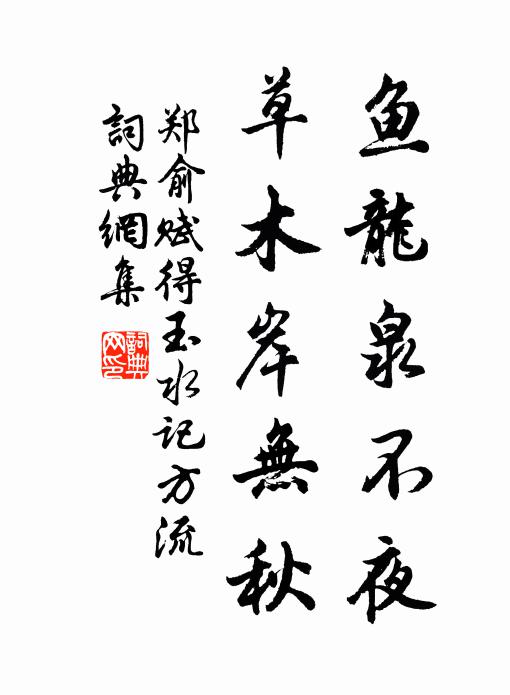 鱼龍泉不夜
草木岸無秋
郑俞赋得玉水记方流
詞典網集
詞典网印